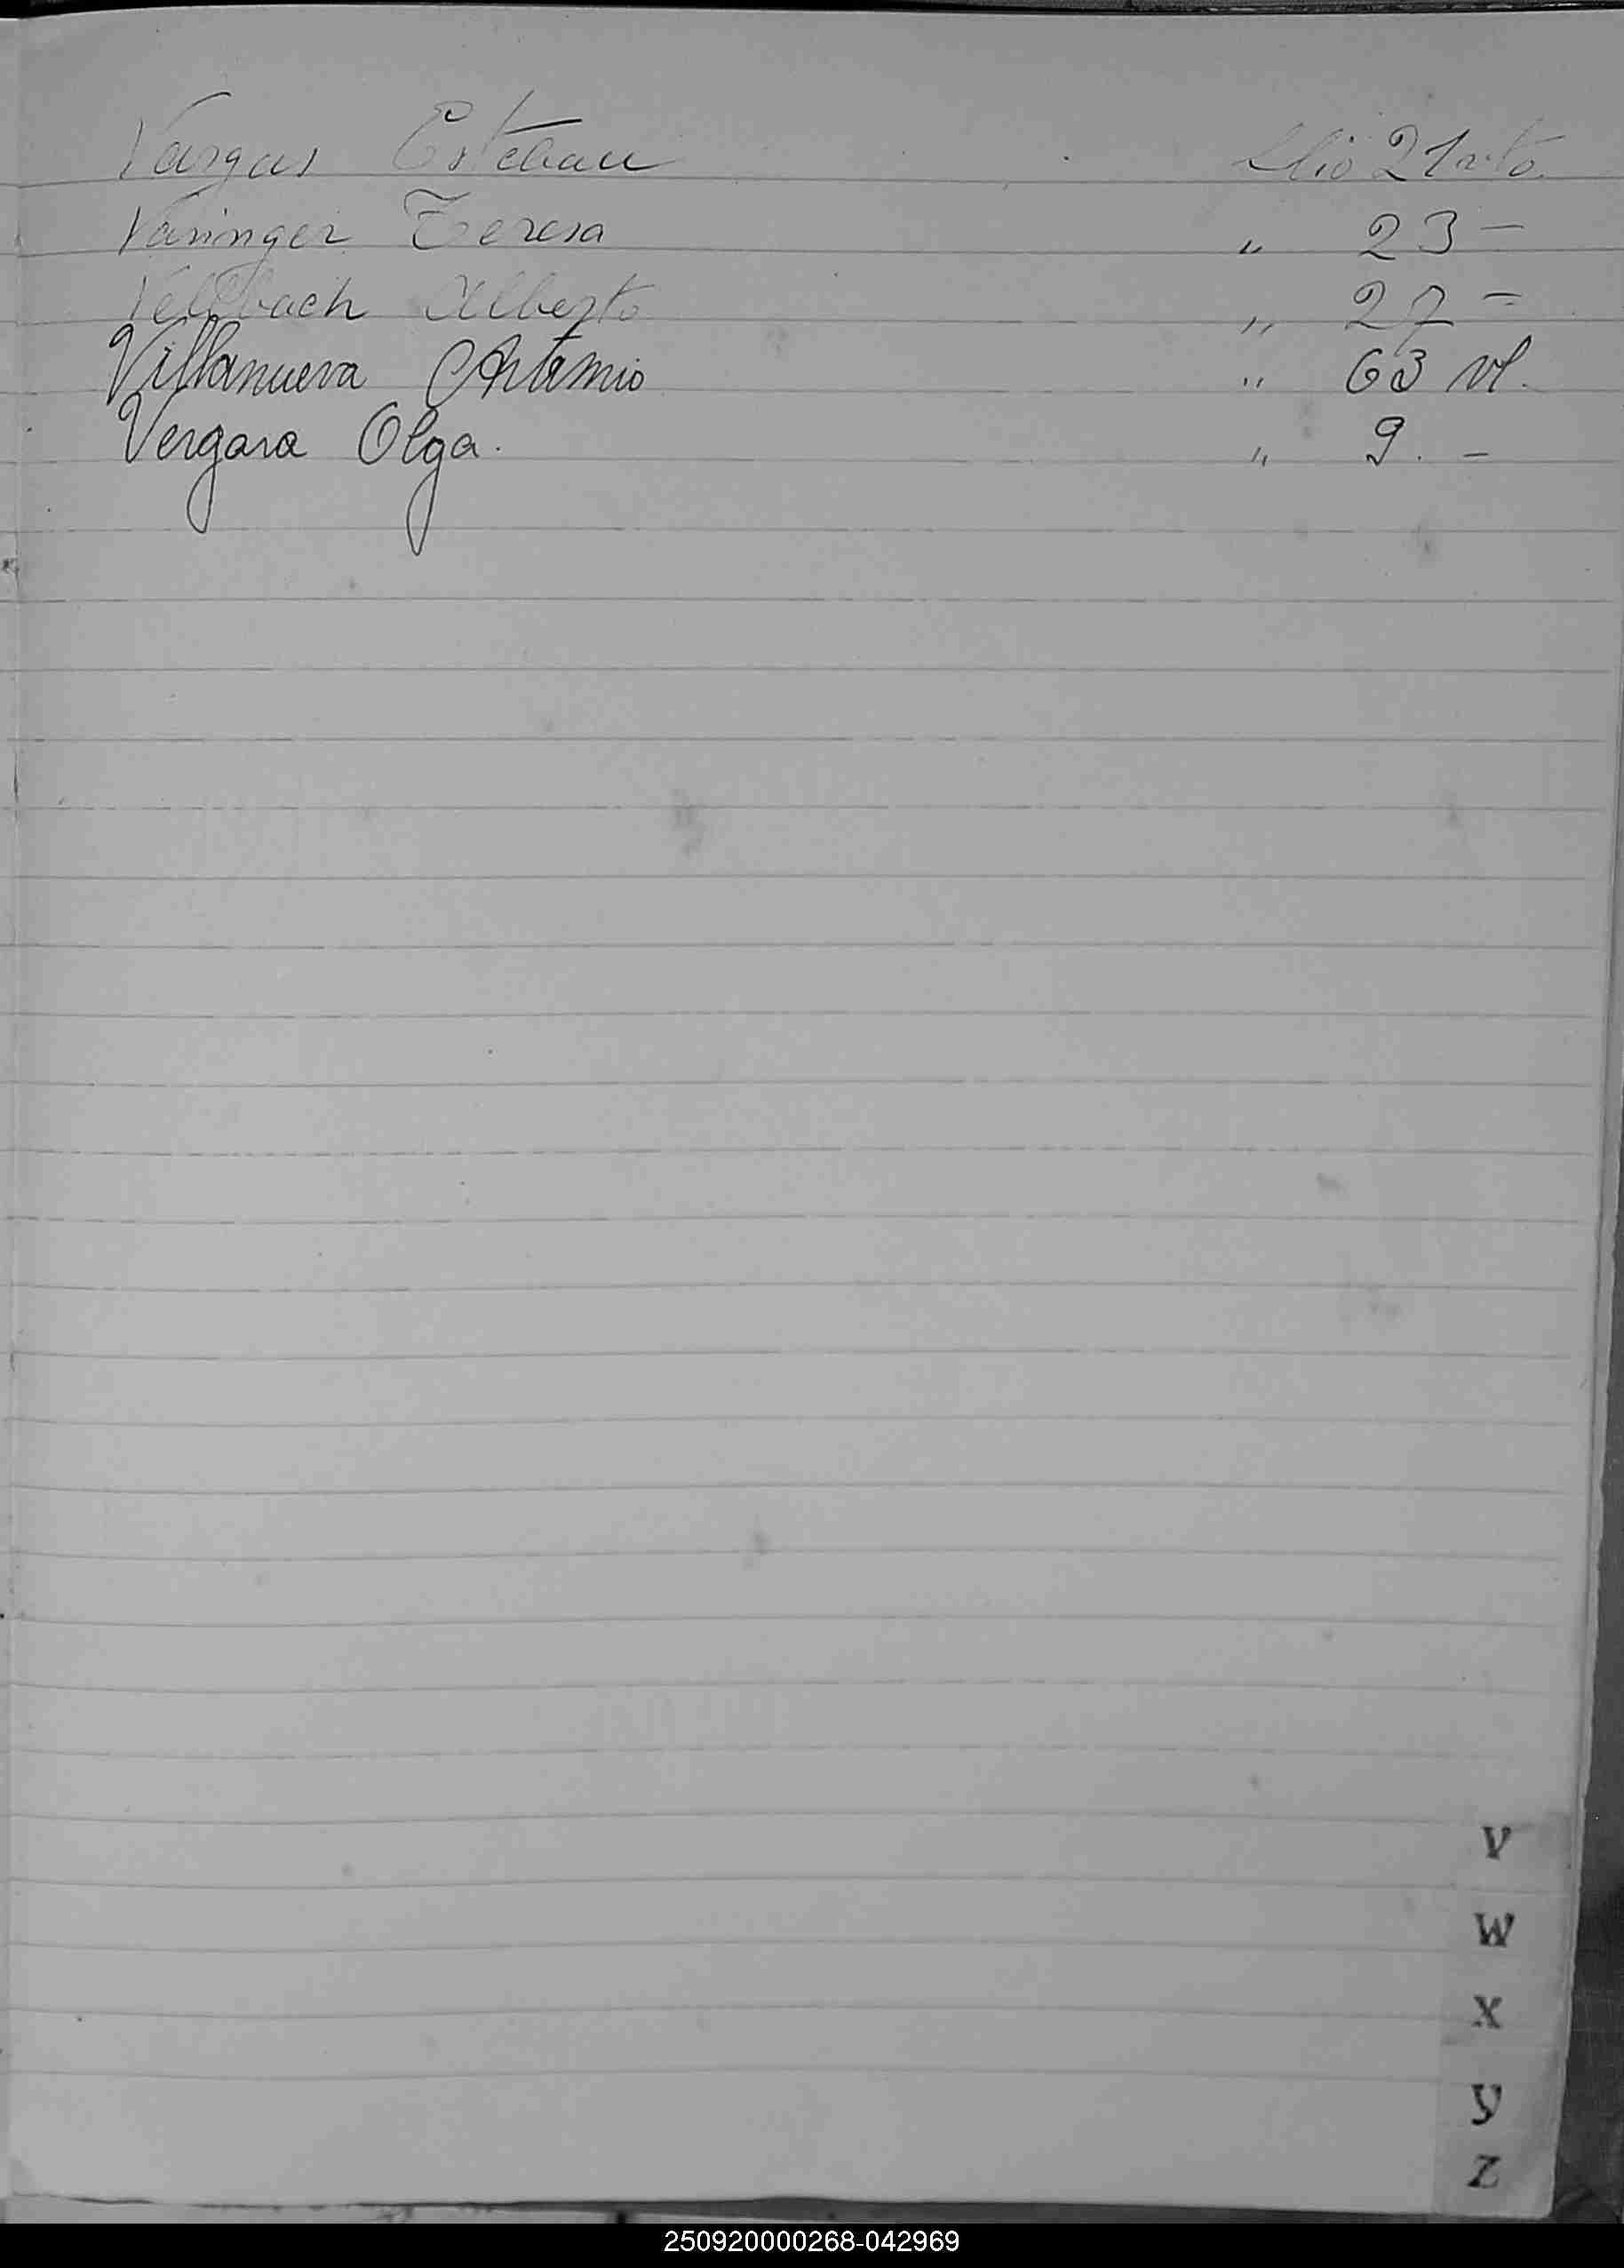 Vargas Esteban 21 vto.
Vaninger Teresa " 23 -
Alberto " 27 -
Villanueva Artemio " 63 vt.
Vergara Olga. " 9. -
V
W
X
Y
Z
250920000268-042969